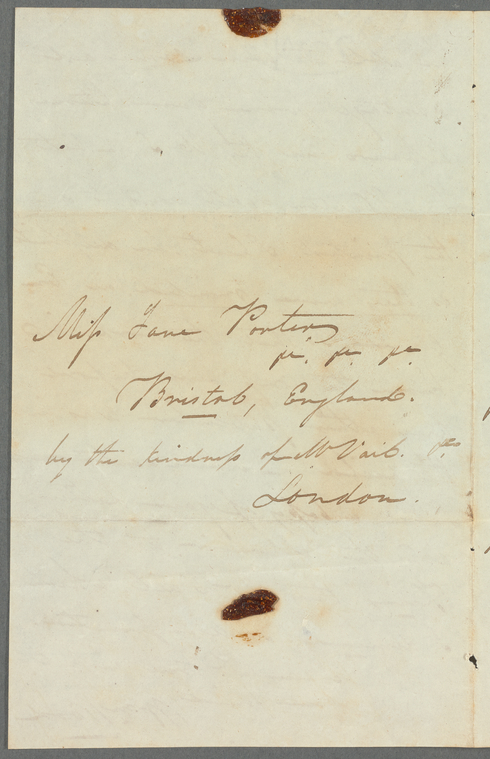 Miss Jane Porter
&c. &c. &c.
Bristol, England.
by the kindness of Mr Vail. &c.
London.